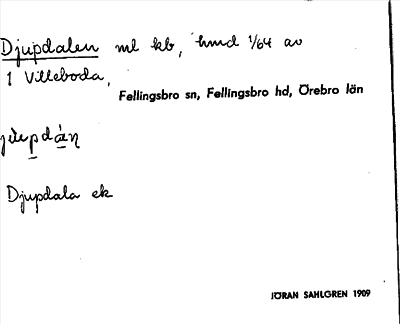 Djupdalen ml kb, hmd 1/64 av
1 Villeboda,
Fellingsbro sn, Fellingsbro hd, Örebro län
Djupdala ek
JÖRAN SAHLGREN 1909